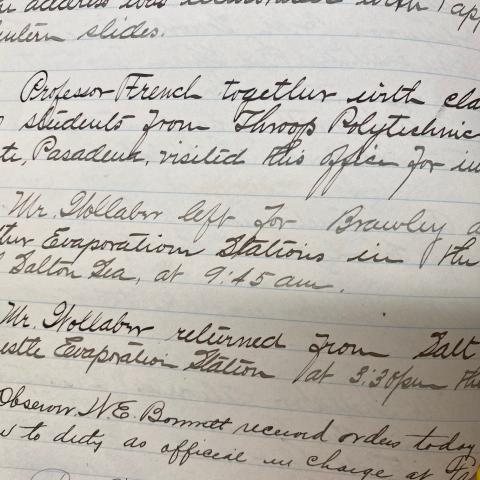 address was
slides.
Professor French together with cla
students from Throop Polytechnic
te, Pasadena, visited this office for in
Mr. Hollaber left for Brawley a
Evaporation Stations in the
Salton Sea, at 9:45 am.
Mr. Hollaber returned from Salt
estle Evaporation Station at 3:30 pm the
Observer W.E. Bonnett received orders today
to duty as official in charge at